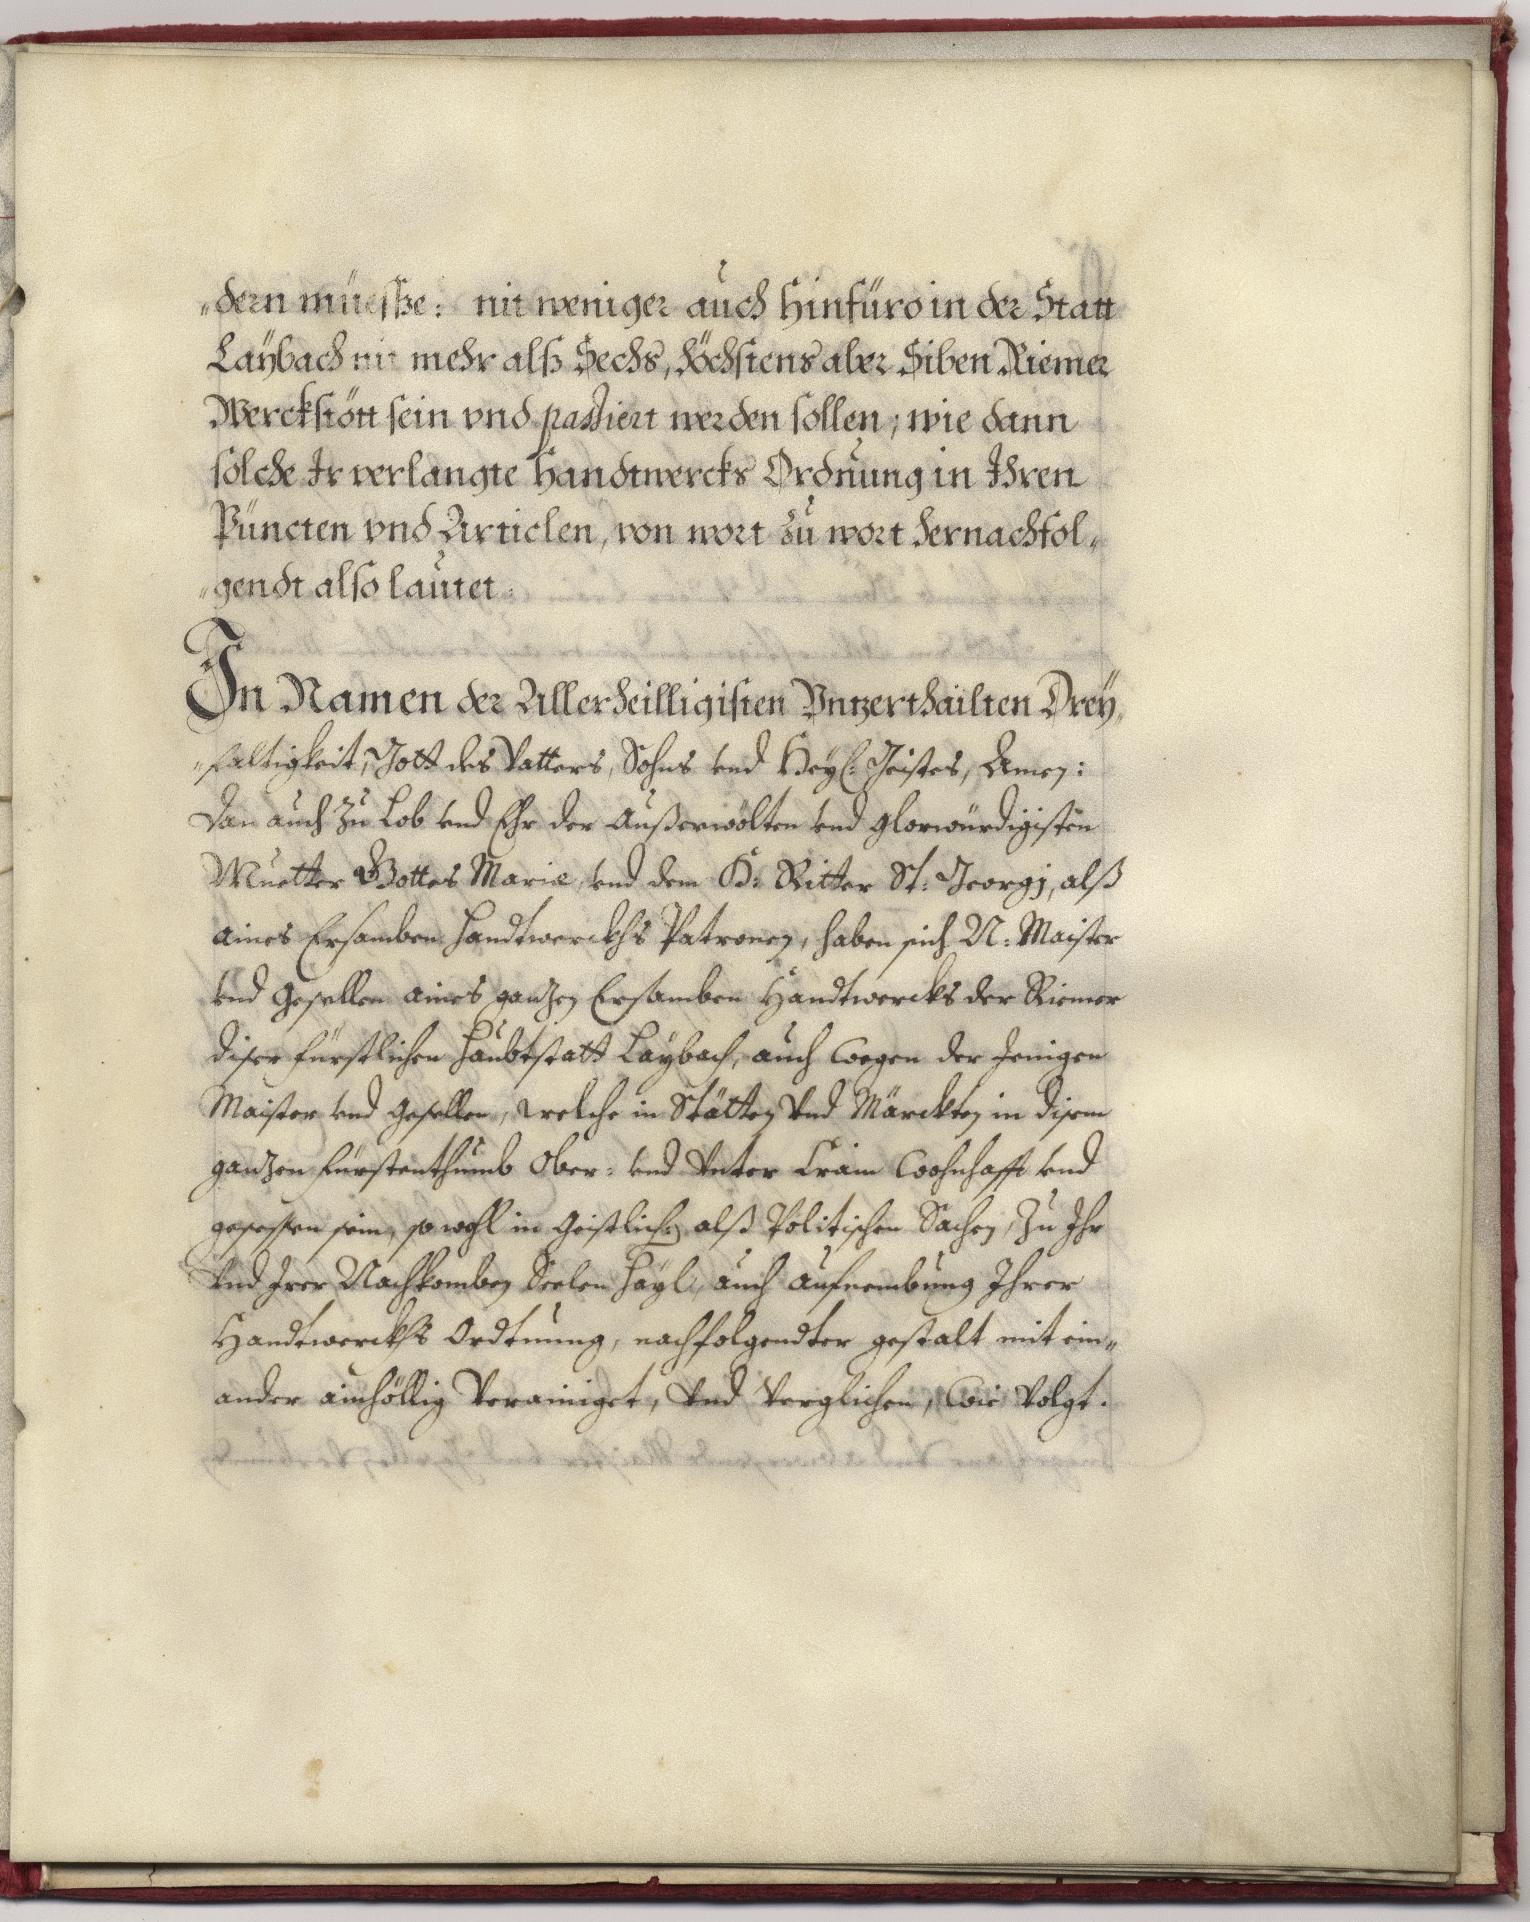 „dern müesße: nit weniger auch hinfüro in der Statt
Laÿbach nit mehr alß Sechs, höchstens aber Siben Riemer
Werckstött sein vnd passiert werden sollen; wie dann
solche Ir verlangte Handtwercks Ordnung in Ihren
Püncten vnd Articlen, von wort zu wort hernachfol„
„gendt also lautet.
In Namen der Allerheilligisten Vntzerthailten Dreÿ„
„faltigkeit, Gott des Vatters, Sohns vnd Heyl: Geistes, Amen:
Dan auch zu Lob vnd Ehr der Außerwölten vnd glorwürdigisten
Muetter Gottes Mariæ, vnd dem H: Ritter St: Georgj, alß
aines Ersamben Handtwerckhs Patronen, haben sich N: Maister
vnd Gesellen aines ganzen Ersamben Handtwercks der Riemer
diser fürstlichen Haubtstatt Laÿbach, auch wegen der Jenigen
Maister vnd Gesellen, welche in Stätten vnd Märckten in disem
ganzen Fürstenthumb Ober- vnd Vnter Crain wohnhafft vnd
gesessen sein, so wohl in Geistlichen alß Politischen Sachen, zu Ihr
vnd Irer Nachkomben Seelen Haÿl, auch aufnembung Ihrer
Handtwerckhs Ordtnung, nachfolgendter gestalt mit ein„
ander ainhöllig Verainiget, vnd Verglichen, wie Volgt.